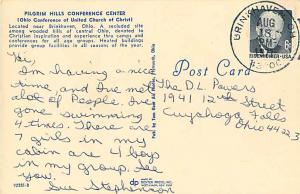 PILGRIM HILLS CONFERENCE CENTER
(Ohio Conference of United Church of Christ)
Located near Brinkhaven, Ohio. A included site
among wooded hills of central Ohio, donated to
Christian inspiration and experience thru camps and
conferences for all age groups. Housekeeping buildings
provide group facilities in all seasons of the year.
Hi,
I'm having a nice
time and I've met
alot of People. I've
gone swimming
4 times. There are
7 girls in my
cabin are 4 boys
in my group. See
you.
Sue
112381-B
Post Card
The D.L. Powers
1941 12th Street
Cuyahoga Falls
Ohio 44223
BRINKHAVEN
AUG
18
PM
6c
EISENHOWER·USA
dp